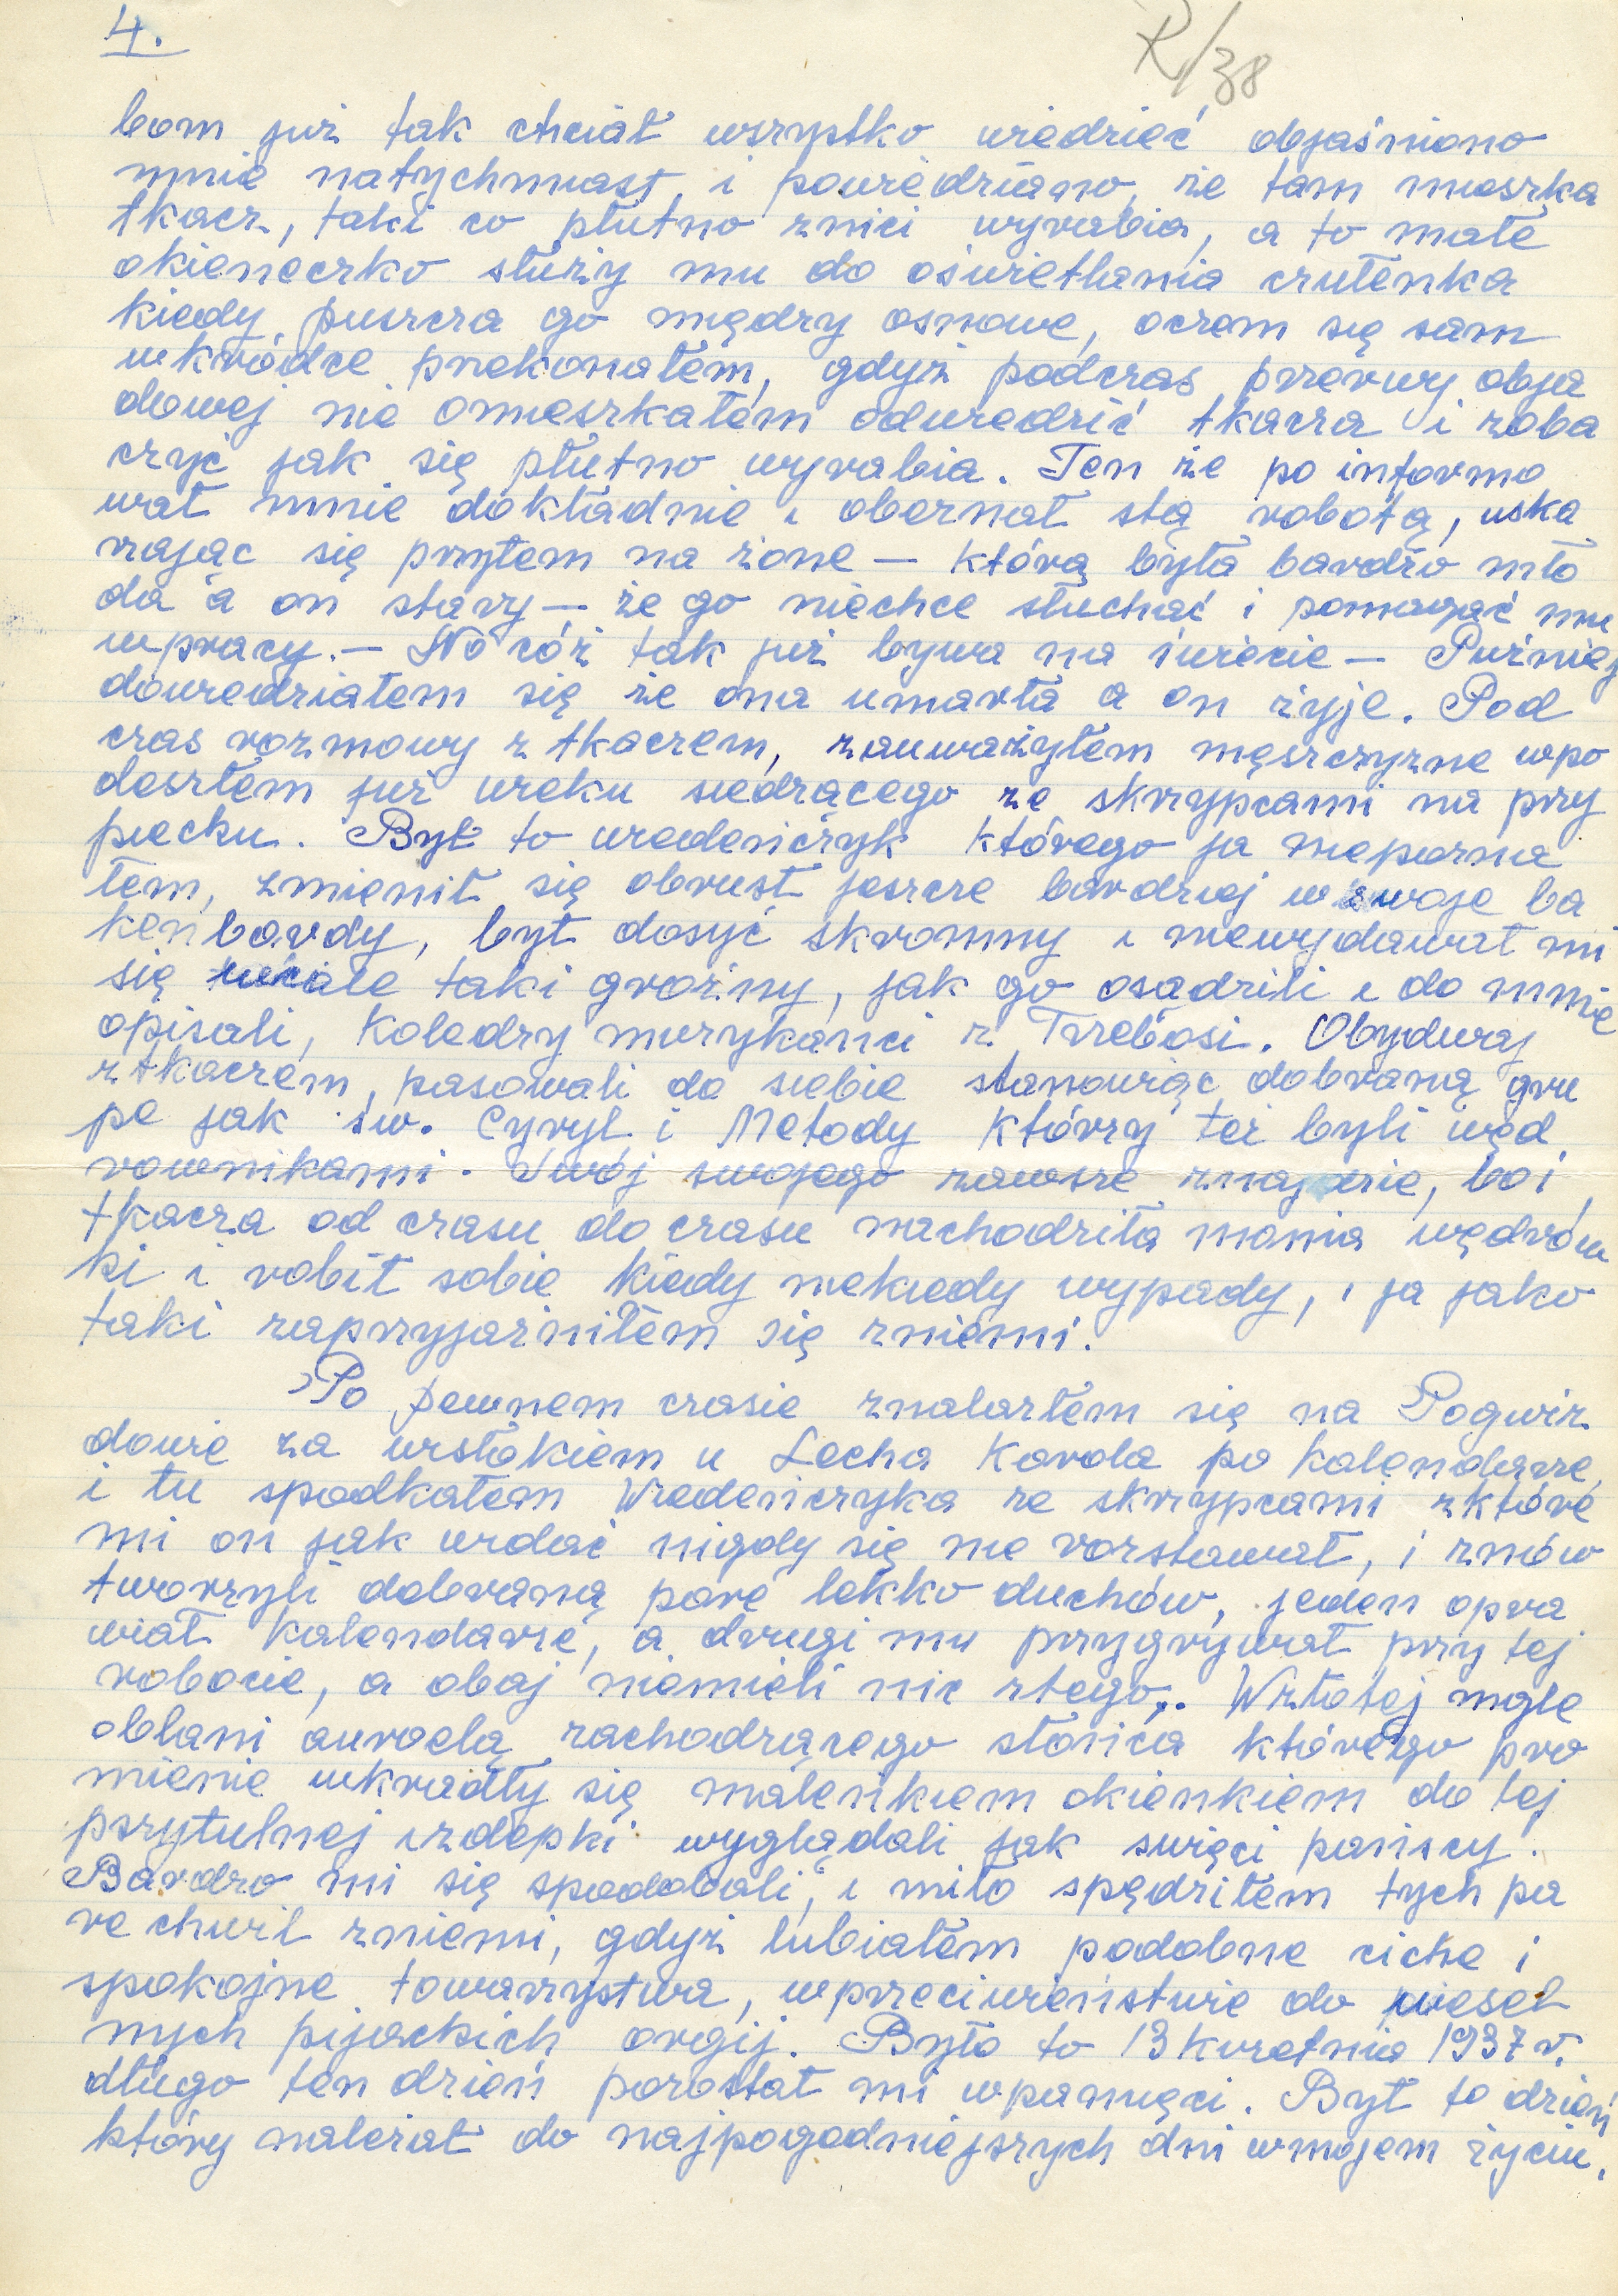 4.
R/38
bom już tak chciał wszystko wiedzieć objaśniono
mnie natychmiast, i powiedziano, że tam mieszka
tkacz, taki co płutno znici wyrabia, a to małe
okieneczko służy mu do oświetlania czułenka
kiedy puszcza go między osnowe, oczem się sam
wkródce przekonałem, gdyż podczas przerwy obja
dowej nie omieszkałem odwiedzić tkacza i zoba
czyć jak się płutno wyrabia. Ten że po informo
wał mnie dokładnie i obeznał stą robotą, uska
rzając się przytem na żone — którą była bardzo mło
da a on stary — że go niechce słuchać i pomagać mu
wpracy. — No cóż tak już bywa na świecie — Puźniej
dowiedziałem się że ona umarła a on żyje. Pod
czas rozmowy z tkaczem, zauważyłem męszczyzne wpo
deszłem już wieku siedzącego ze skrzypcami na przy
piecku. Był to wiedeńczyk którego ja niepozna
łem, zmienił się obrust jeszcze bardziej w swoje ba
kenbardy, był dosyć skromny i niewydawał mi
się wcale taki groźny, jak go osądzili i do mnie
opisali, Koledzy murykanci z Trzebosi. Obydwaj
ztkaczem, pasowali do siebie stanowiąc dobraną gru
pe jak św. Cyryl i Metody którzy też byli węd
rownikami. Swój swojego zawsze znajdzie, bo i
tkacza od czasu do czasu nachodziła mania wędrów
ki i robił sobie kiedy niekiedy wypady, i ja jako
taki zaprzyjaźniłem się zniemi.
Po pewnem czasie znalazłem się na Pogwiz
dowie za wsłokiem u Lecha Karola po kalendarze,
i tu spodkałem Wiedeńczyka ze skrzypcami zktóre
mi on jak widać nigdy się nie rozstawał, i znów
tworzyli dobraną pare lekko duchów, jeden opra
wiał kalendarze, a drugi mu przygrywał przy tej
robocie, a obaj niemieli nic ztego,. Wzłotej mgle
oblani aureolą zachodzącego słońca którego pro
mienie wkradły się maleńkiem okienkiem do tej
przytulnej izdepki wyglądali jak święci pańscy.
Bardzo mi się spodobali, i miło spędziłem tych pa
re chwil zniemi, gdyż lubiałem podobne ciche i
spokojne towarzystwa, wprzeciwieństwie do wesel
nych pijackich orgij. Było to 13 kwietnia 1937 r.
długo ten dzień pozostał mi wpamięci. Był to dzień
który należał do najpogodniejszych dni wmojem życiu.